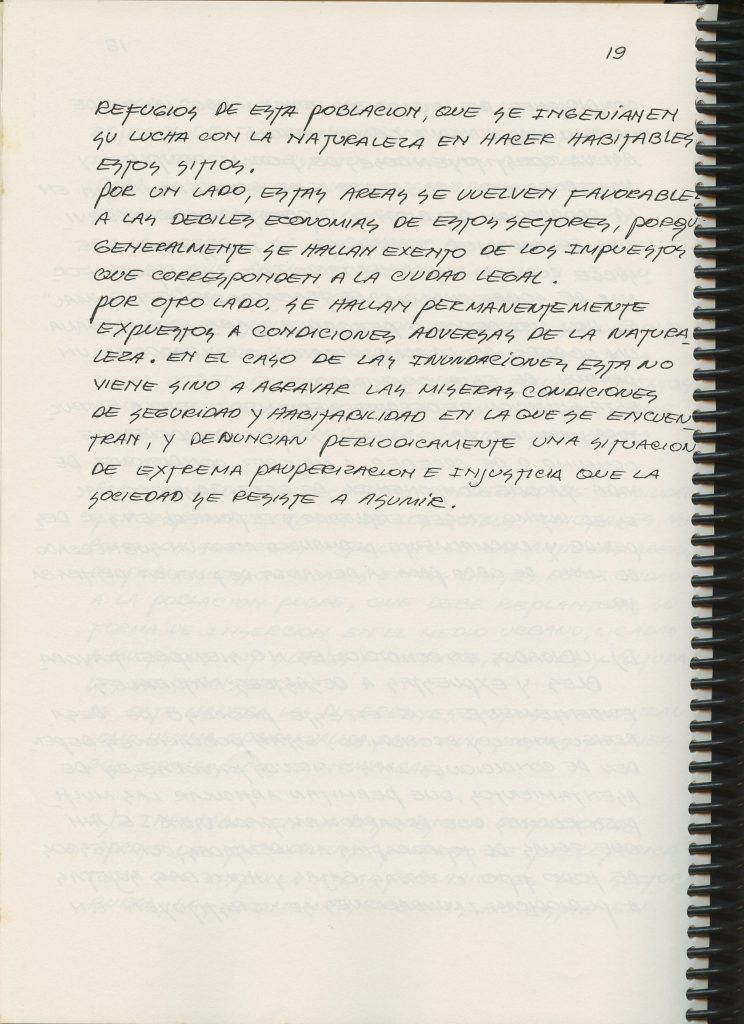 19
REFUGIOS DE ESTA POBLACION, QUE SE INGENIAN EN
SU LUCHA CON LA NATURALEZA EN HACER HABITABLES
ESTOS SITIOS.
POR UN LADO, ESTAS AREAS SE VUELVEN FAVORABLE
A LAS DEBILES ECONOMIAS DE ESTOS SECTORES, PORQU
GENERALMENTE SE HALLAN EXENTO DE LOS IMPUESTOS
QUE CORRESPONDEN A LA CIUDAD LEGAL.
POR OTRO LADO, SE HALLAN PERMANENTEMENTE
EXPUESTOS A CONDICIONES ADVERSAS DE LA NATURA-
LEZA. EN EL CASO DE LAS INUNDACIONES ESTA NO
VIENE SINO A AGRAVAR LAS MISERAS CONDICIONES
DE SEGURIDAD Y HABITABILIDAD EN LA QUE SE ENCUEN-
TRAN, Y DENUNCIAN PERIODICAMENTE UNA SITUACION
DE EXTREMA PAUPERIZACION E INJUSTICIA QUE LA
SOCIEDAD SE RESISTE A ASUMIR.